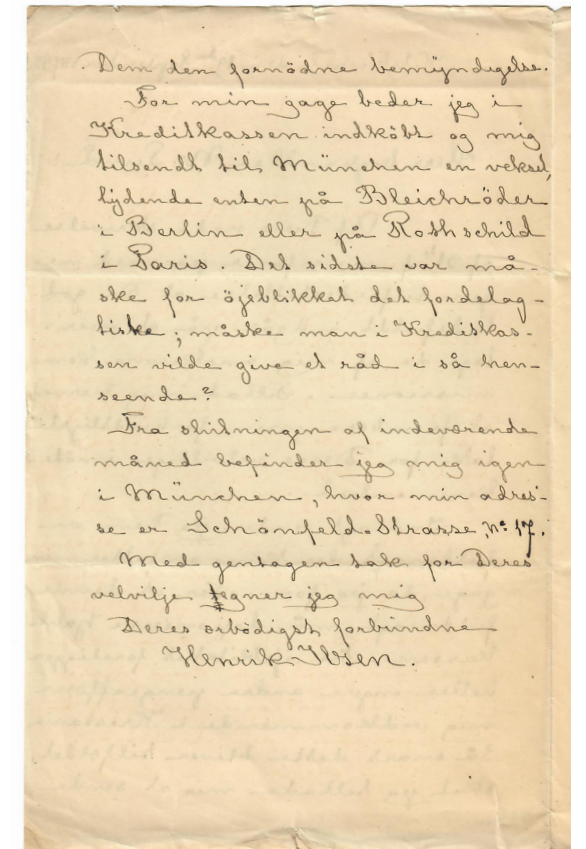 Dem den fornödne bemyndigelse.
For min gage beder jeg i
Kreditkassen indköbt og mig
tilsendt til München en veksel,
lydende enten på Bleichröder
i Berlin eller på Rothschild
i Paris. Det sidste var må-
ske for öjeblikket det fordelag-
tiske; måske man i Kreditkas-
sen vilde give et råd i så hen-
seende?
Fra slutningen af indeværende
måned befinder jeg mig igen
i München, hvor min adres-
se er Schönfeld-Strasse, No 17.
Med gentagen tak for Deres
velvilje tegner jeg mig
Deres ærbödigst forbundne
Henrik Ibsen.